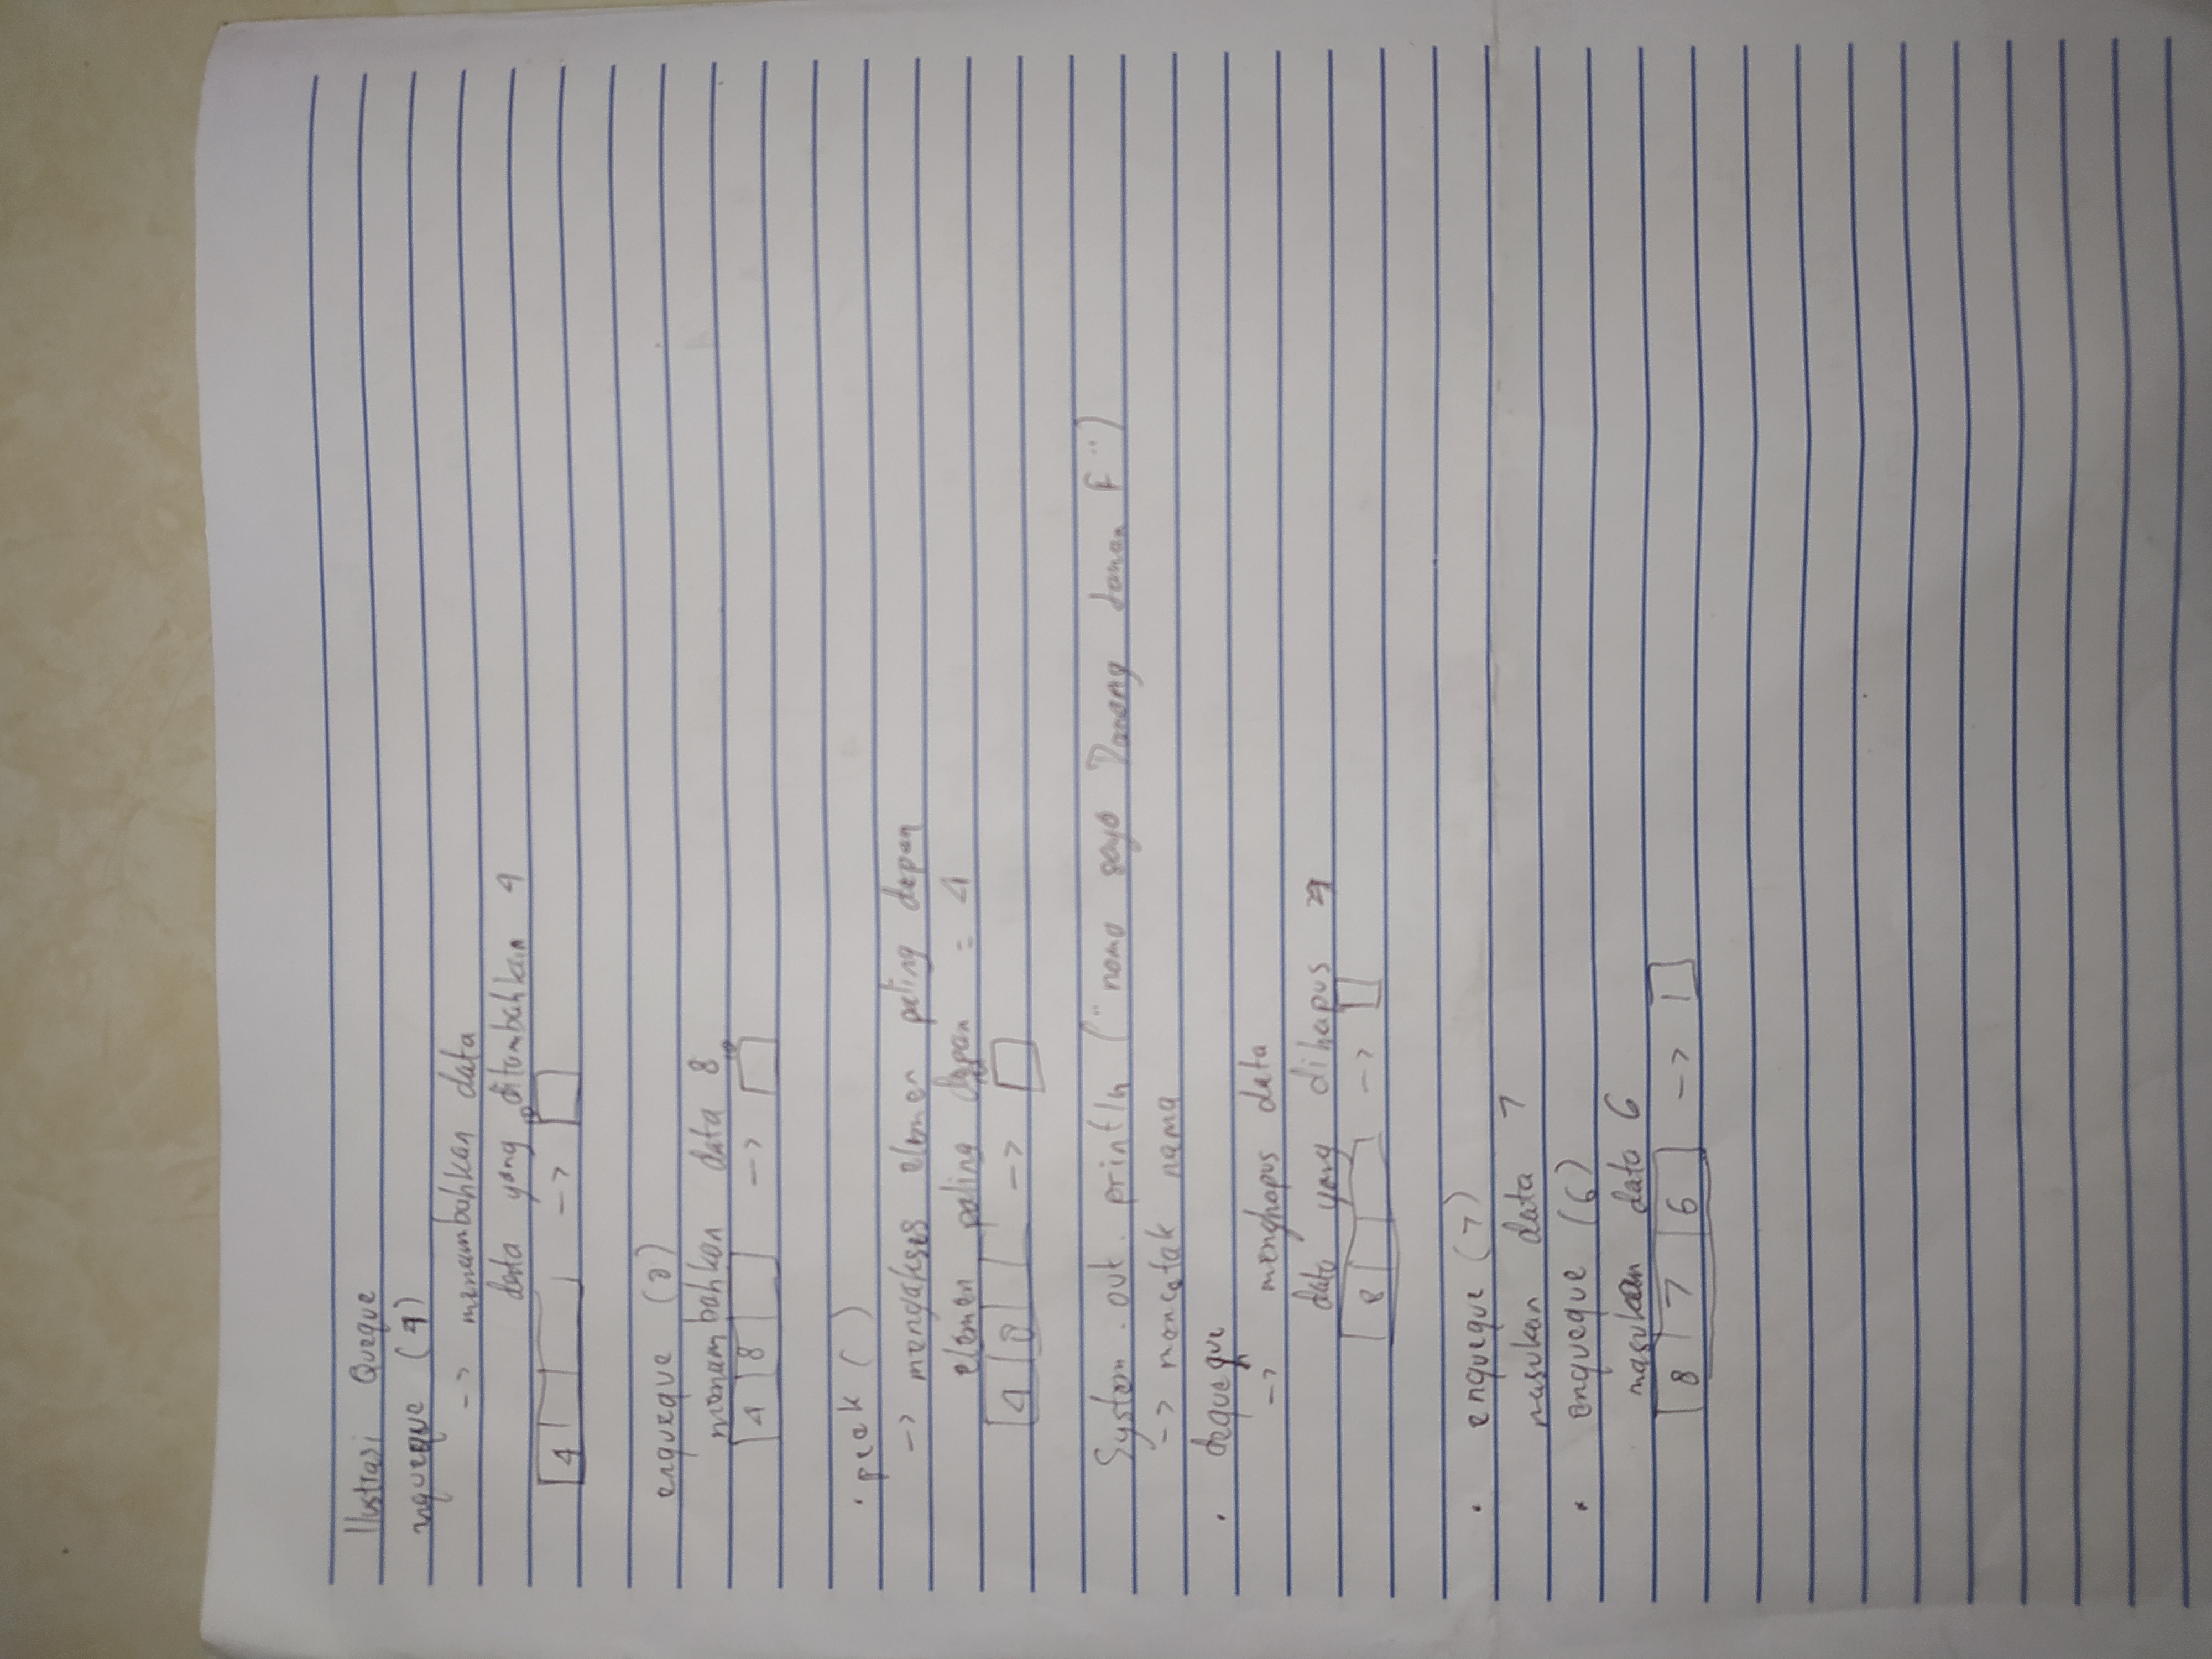 Ilustrasi Queque
nqueque (4)
-> menambahkan data
data yang ditambahkan 4
4 ->
enqueque (8)
menambahkan data 8
4 8 ->
• peek ( )
-> mengakses elemen paling depan
elemen paling depan = 4
4 8 ->
System . out . println ("nama saya Danang F")
-> mencetak nama
• dequeque
-> menghapus data
data yang dihapus 4
8 ->
• enqueque (7)
masukan data 7
• enqueque (6)
masukan data 6
8 7 6 ->